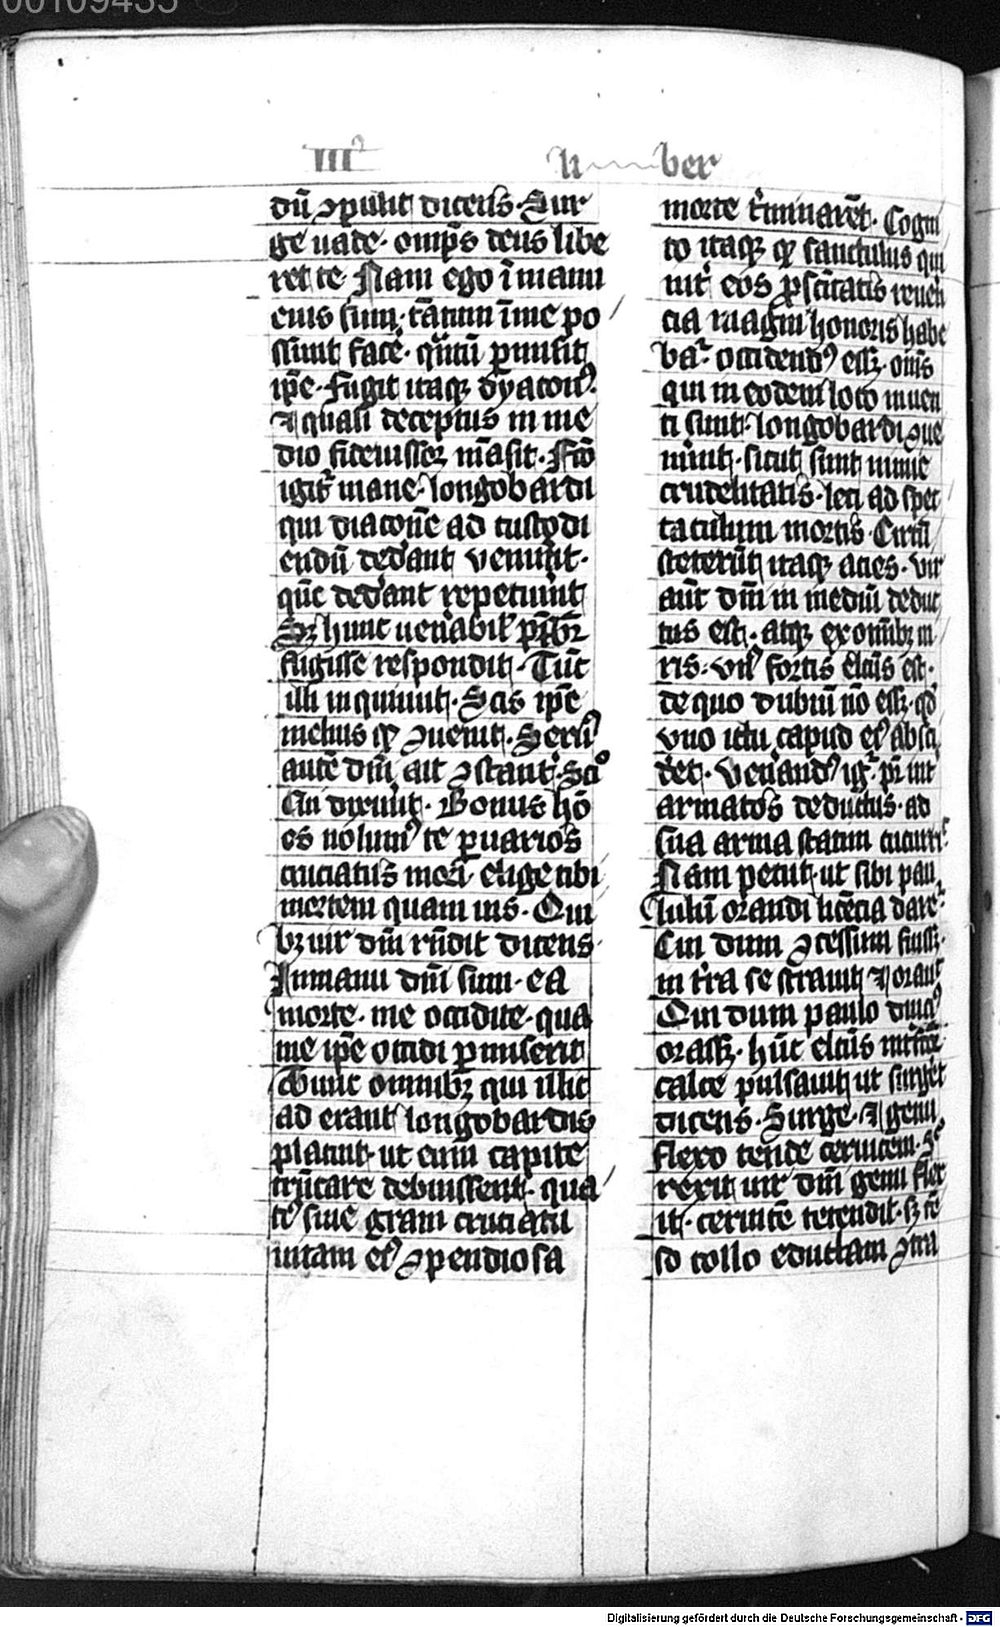 00109435
IIIꝰ li ber
dū ꝯpulit dicens · Sur
ge uade · omīps deus libe
ret te · Nam ego ī manu
eius sum · tātum ī me po
ssunt facẽ · qͣntū ꝑmisit
ip̄e · Fugit itaqꝫ dyaconꝰ ·
⁊ quasi deceptus in me
dio fideiussor m̄asit · Fc̄o
igit᷑ mane · longobardi
qui diaconē ad custodi
endū ded̓ant venerūt ·
quē ded̓ant repetiuint
Sꝫ hunc uen̓abil̓ pr̄bꝝ
fugisse respondit · Tūc
illi inquiunt · Scis ip̄e
melius qꝫ ꝯuenit · Seruꝰ
autē dn̄i ait ꝯstant᷑ · Scio
Cui dixerūt · Bonus hō
es nolumꝰ te ꝑ uarios
cruciatus mori · elige tibi
mortem quam uis · Cui
bꝫ uir dn̄i rn̄dit dicens ·
In manu dn̄i sum · ea
morte · me occidite · qua
me ip̄e occidi ꝑmiserit
Tunc omnibꝫ qui illic
ad erant longobardis
placuit · ut eum capite
trūcare debuissent · qua
tꝰ siue gram cruciatū
uitam eiꝰ ꝯpendiosa
morte t̓minarēt · Cogni
to itaqꝫ qꝫ sanctulus qui
int᷑ eos ꝓ sc̄itatis reuerē
cia magni honoris habe
bat᷑ occidendꝰ essꝫ · om̄s
qui in eodem loco inuen
ti sunt · longobardi ꝯue
nerūt · sicut sunt nimie
crudelitatis · leti ad spec
taculum mortis · Circū
steterūt itaqꝫ acies · vir
aūt dn̄i in mediū deduc
tus est · atqꝫ ex omībꝫ ui
ris · virꝰ fortis elcūs est ·
de quo dubiū nō essꝫ · qd̓
vno ictu capud eiꝰ absci
det · Ven̓andꝰ ig᷑ pr̄ int᷑
armatos deductus · ad
sua arma statim cucurrit
Nam petiit · ut sibi pau
lulū orandi licēcia daret᷑
Cui dum ꝯcessum fuissꝫ ·
in t̓ra se strauit ⁊ orauit
Qui dum paulo diuciꝰ
orassꝫ · hūc elcūs
calce pulsauit ut surget
dicens · Surge · ⁊ genu
flexo tende ceruicem ·
rexit uir dn̄i genu flex
it · ceruicē tetendit · sꝫ tē
so collo eductam ꝯtra
Digitalisierung gefördert durch die Deutsche Forschungsgemeinschaft - DFG